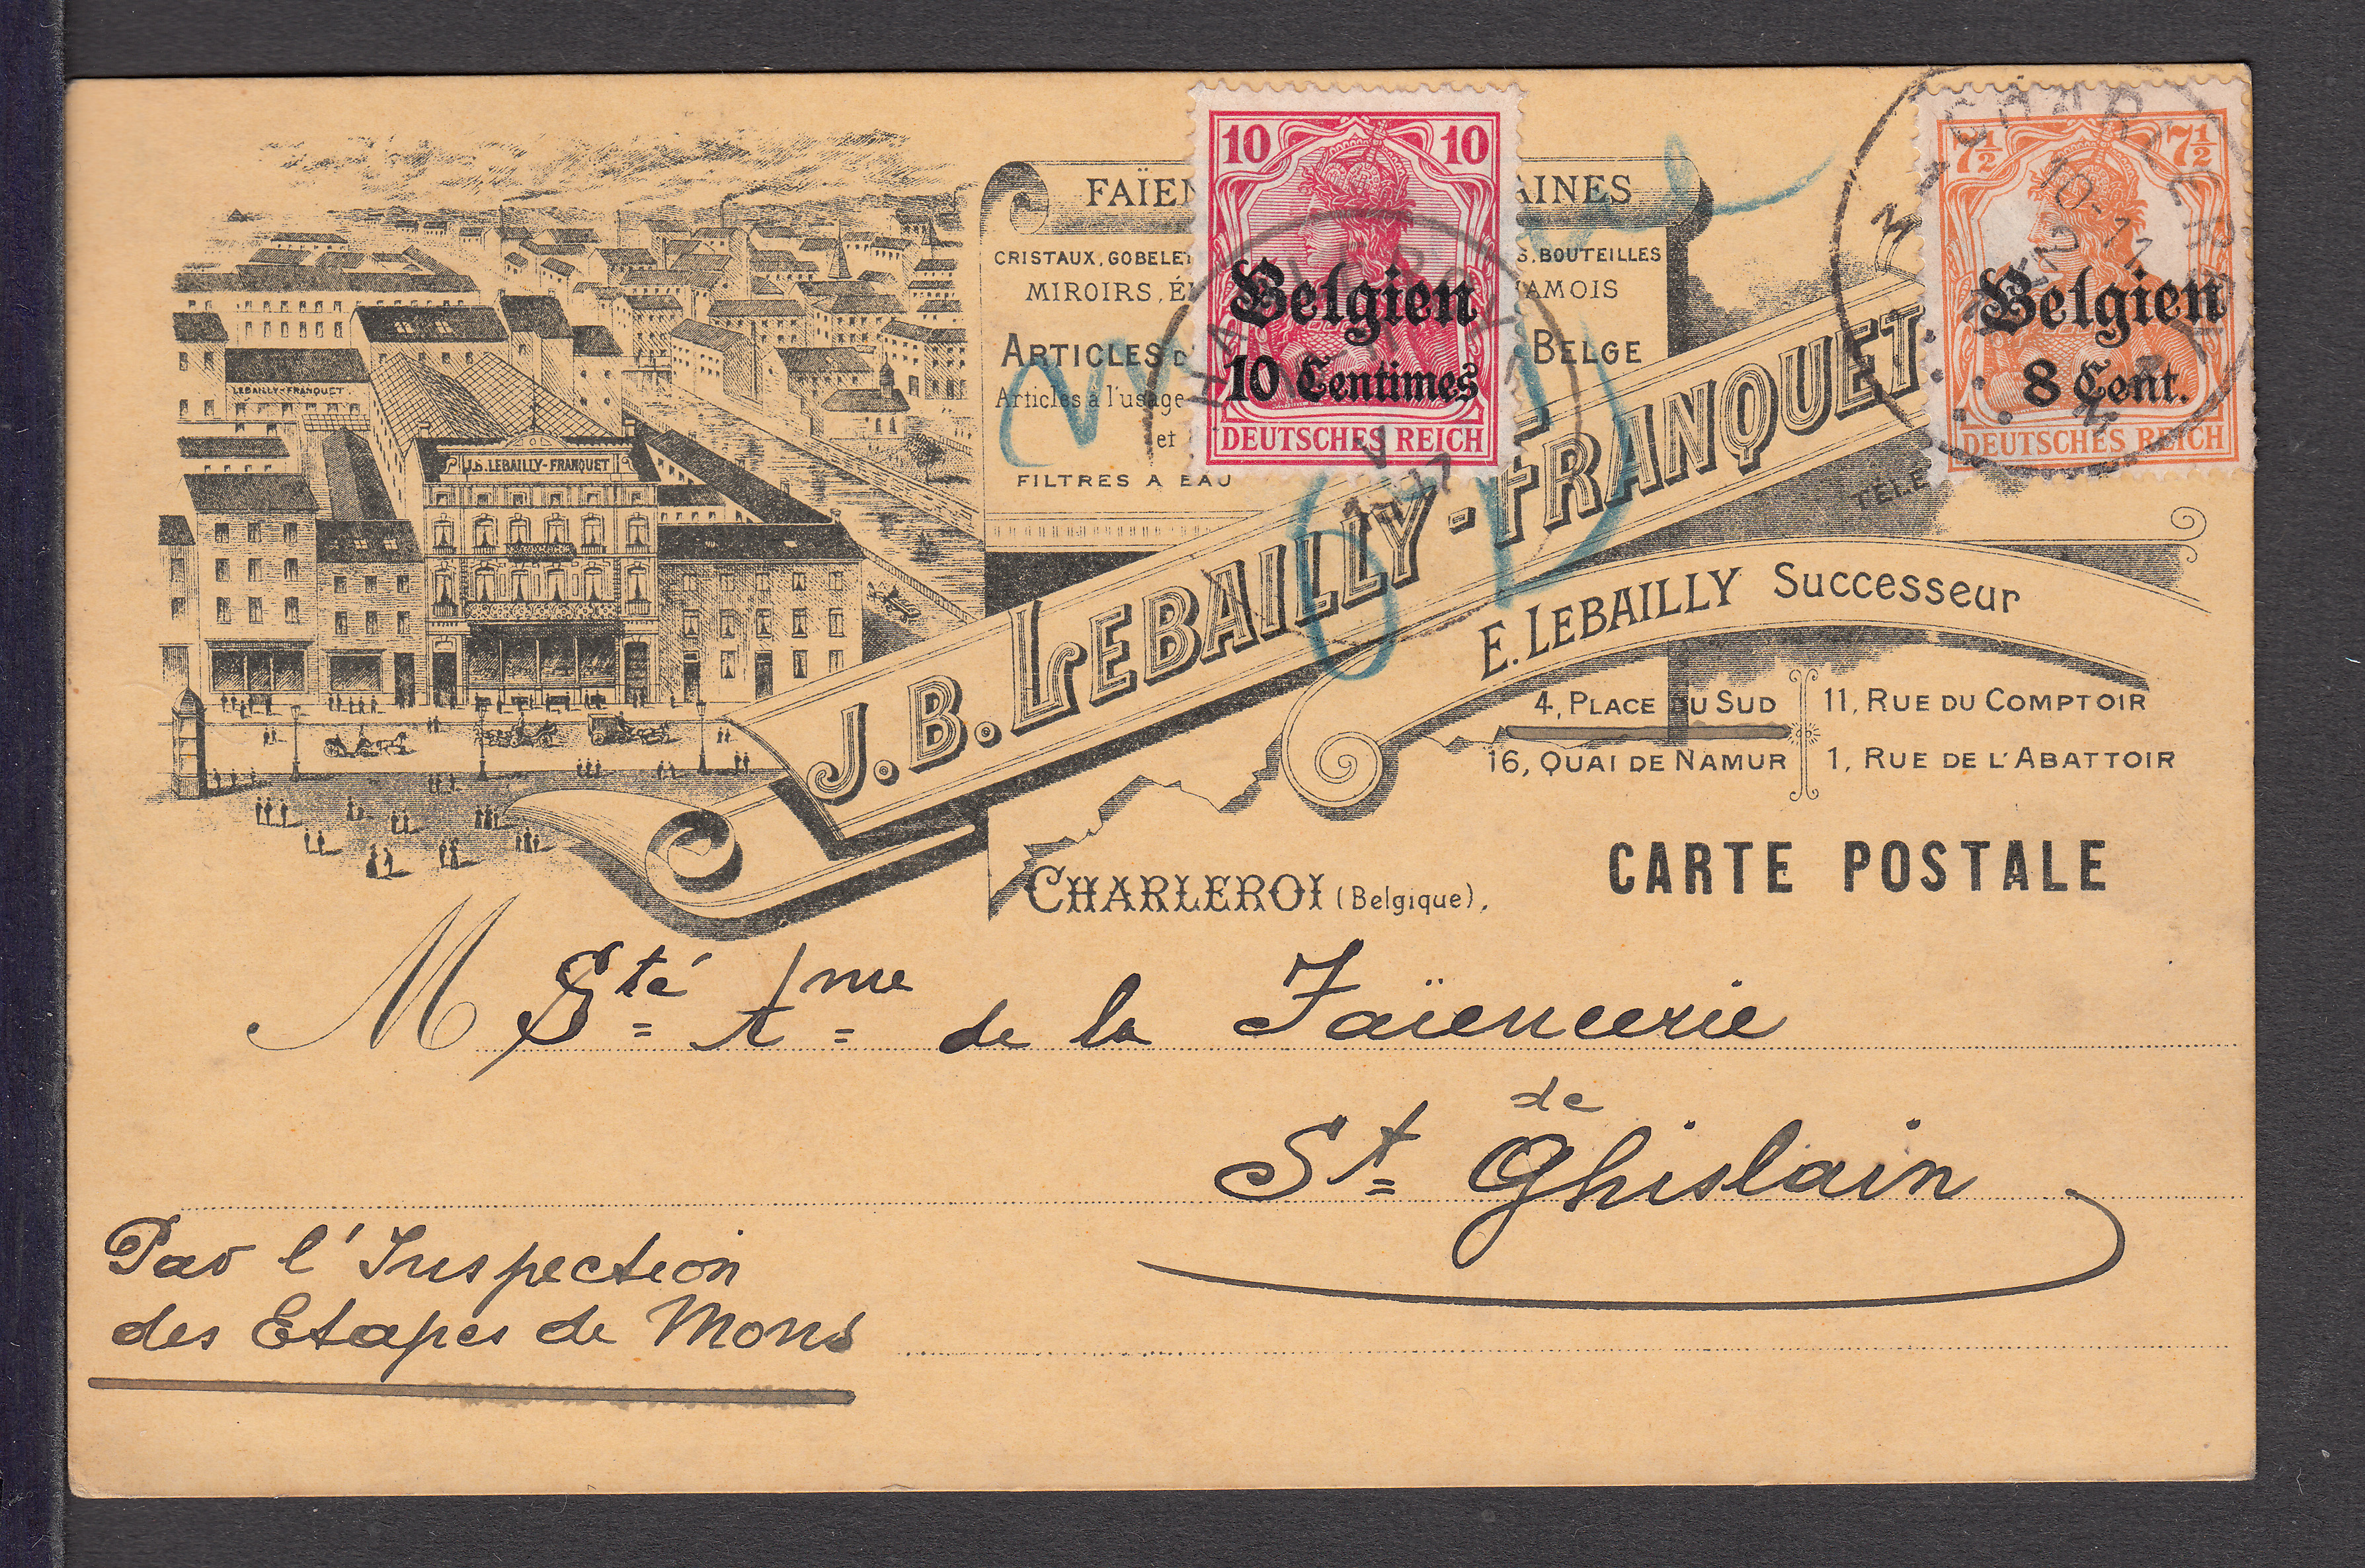 10 10
Belgien
10 Centimes
DEUTSCHES REICH
7½ 7½
Belgien
8 Cent.
DEUTSCHES REICH
CHARLEROI
10-11
CRISTAUX, GOBELE
S. BOUTEILLES
MIROIRS,
AMOIS
ARTICLES
BELGE
Articles à l'usage
et
FILTRES A EAU
LEBAILLY-FRANQUET
J.B. LEBAILLY-FRANQUET
J. B. LEBAILLY-FRANQUET
E. LEBAILLY Successeur
4, PLACE DU SUD
11, RUE DU COMPTOIR
16, QUAI DE NAMUR
1, RUE DE L'ABATTOIR
CHARLEROI (Belgique),
CARTE POSTALE
M Sté Ame de la Faïencerie
de
St Ghislain
Par l'Inspection
des Etapes de Mons